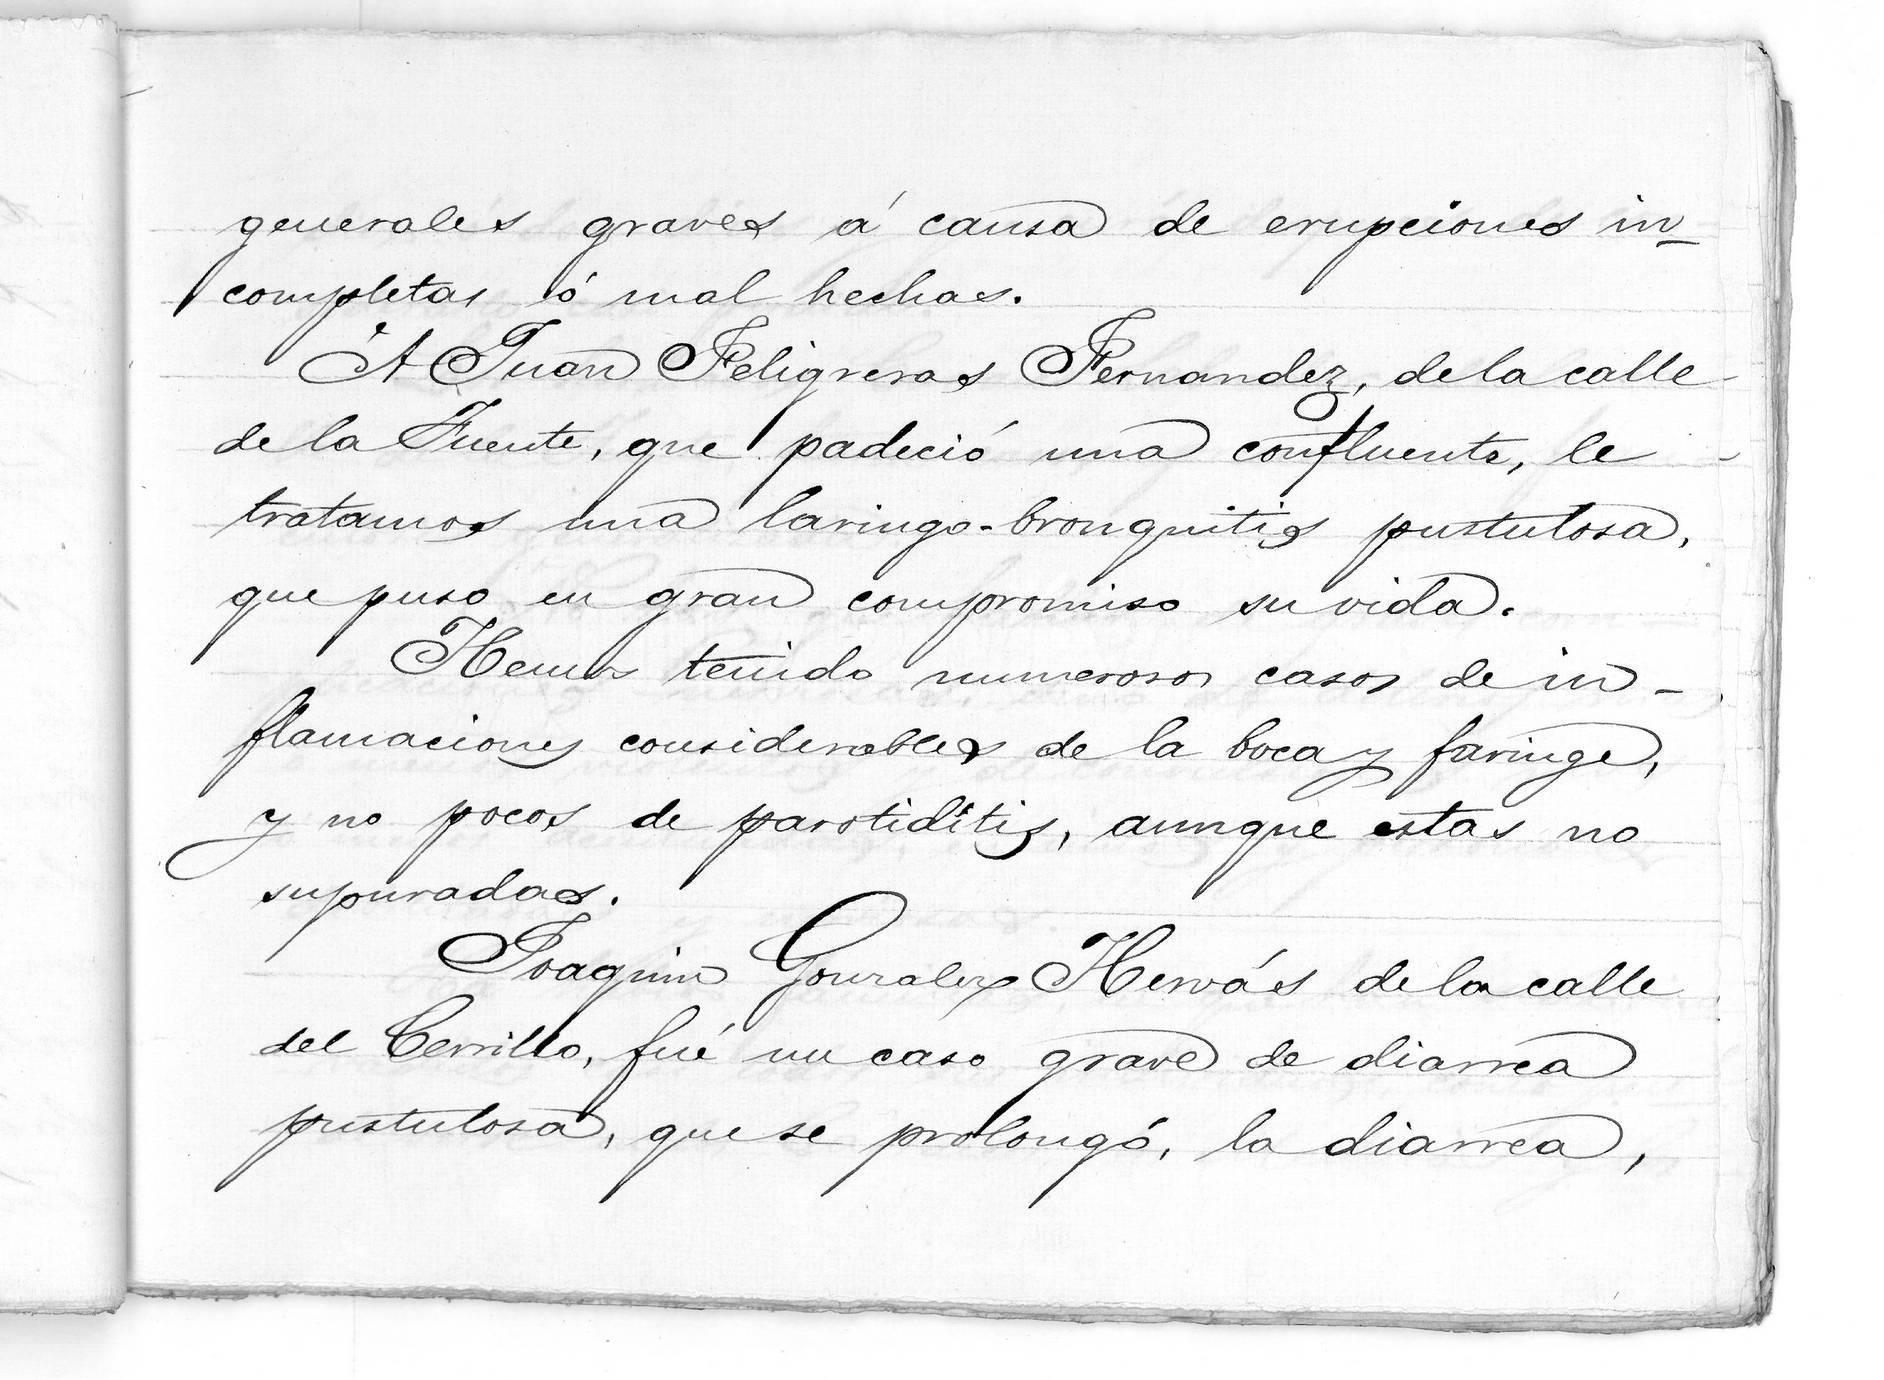 generales graves á causa de erupciones in-
completas ó mal hechas.
Á Juan Feligreras Fernandez, de la calle
de la Fuente, que padeció una confluente, le
tratamos una laringo-bronquitis pustulosa,
que puso en gran compromiso su vida.
Hemos tenido numerosos casos de in-
flamaciones considerables de la boca y faringe,
y no pocos de parotiditis, aunque estas no
supuradas.
Joaquin Gonzalez Hervás de la calle
del Cerrillo, fué un caso grave de diarrea
pustulosa, que se prolongó, la diarrea,